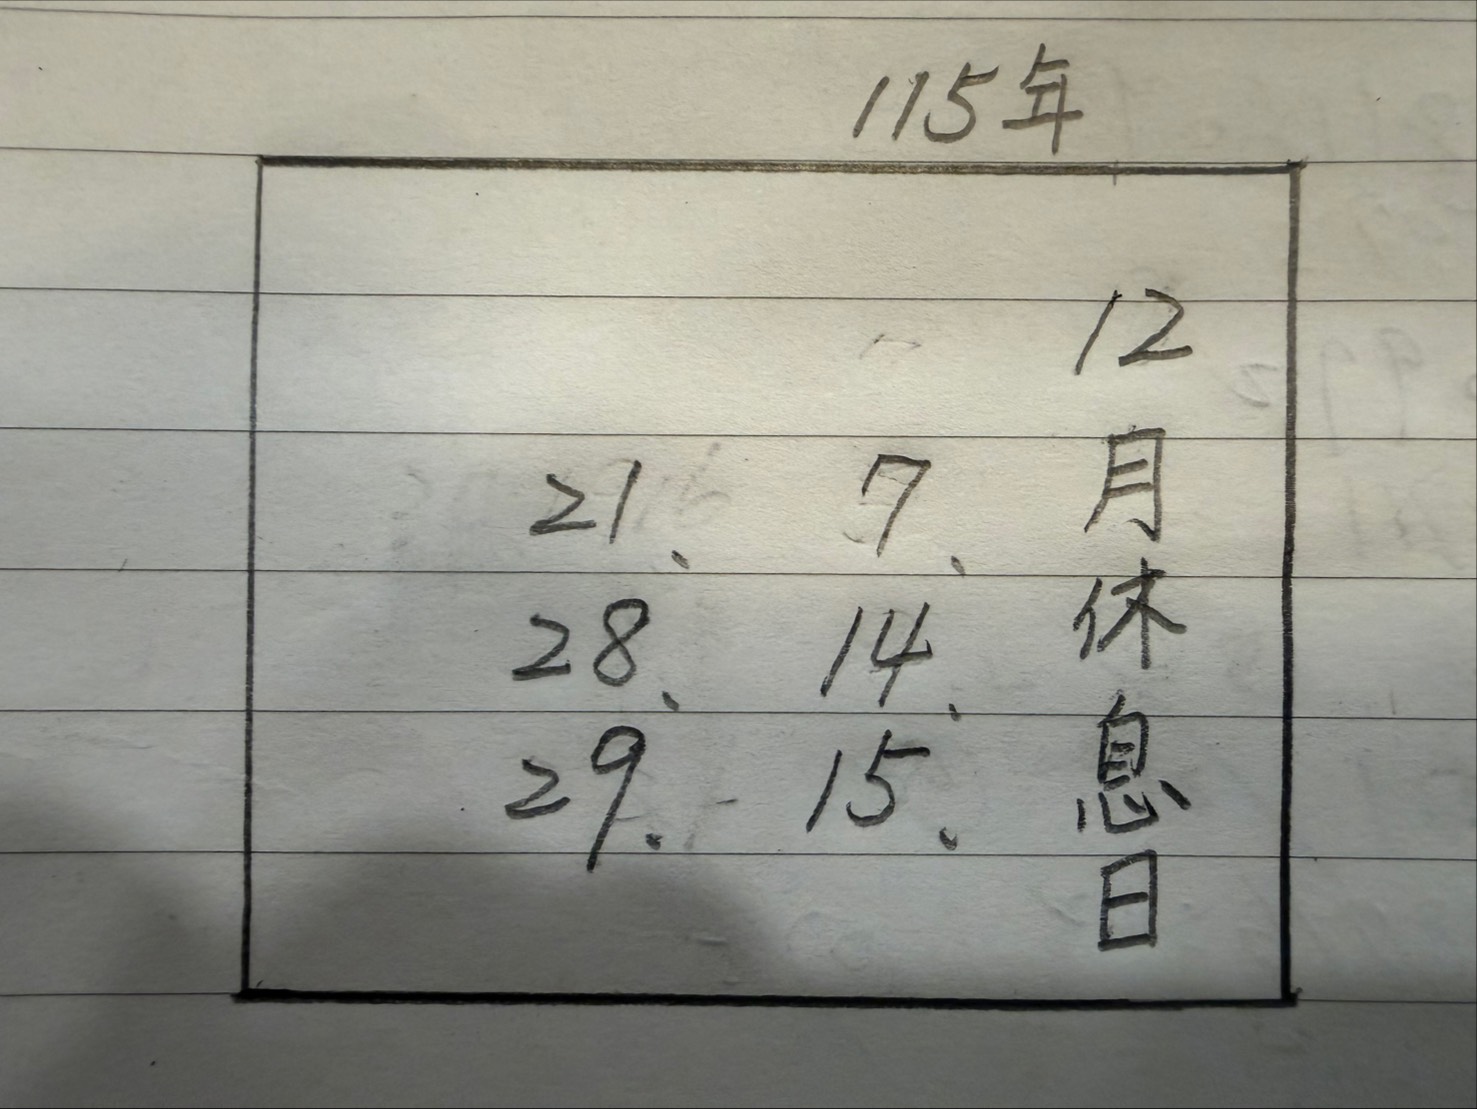 115年
12月休息日
7、14、15、
21、28、29.